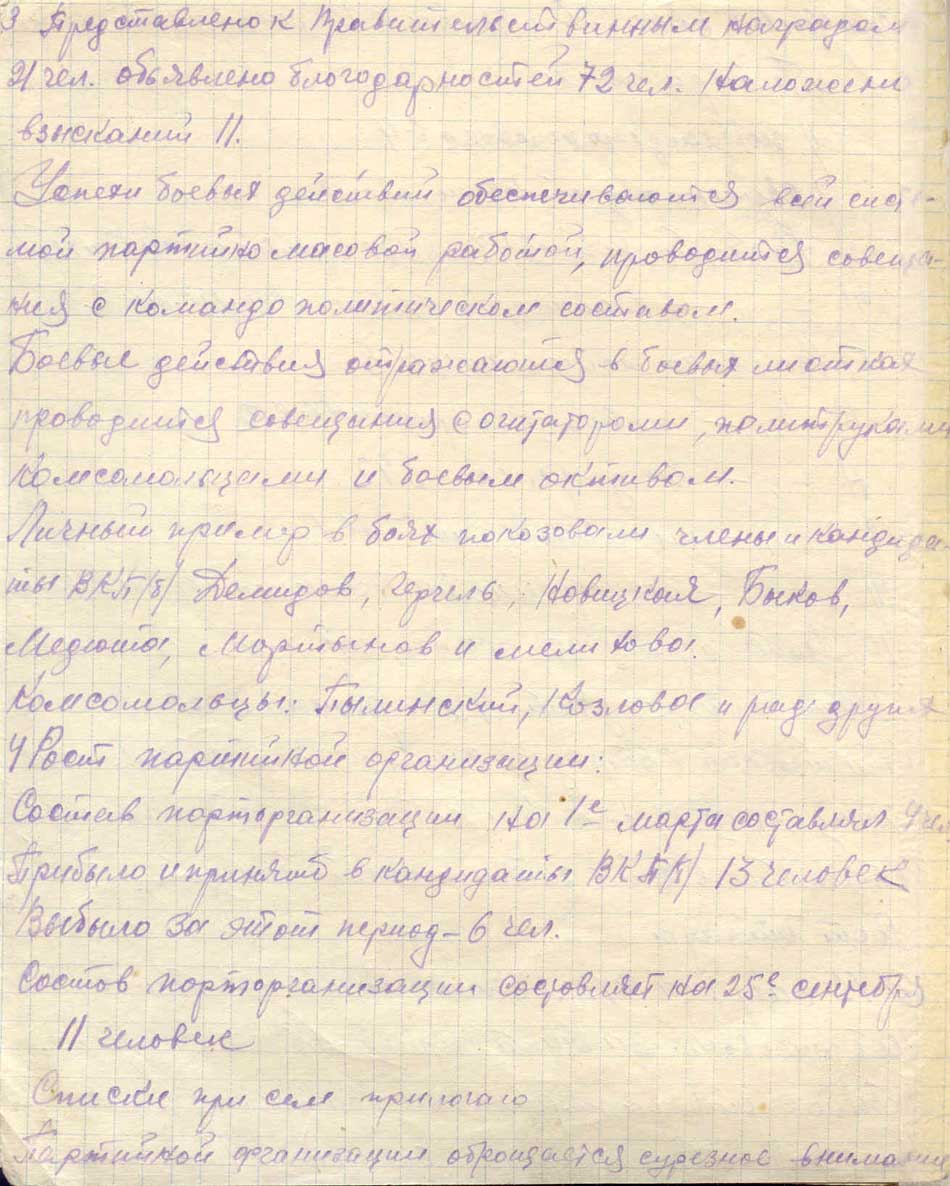 3 Представлено к Правительствинным наградам
21 чел. обьявлено благодарностей 72 чел. Наложени
взысканий 11.
Успехи боевых действий обеспечиваются всей сис-
мой партийно масовой работой, проводится совеща-
ния с командо политическом составом.
Боевые действия отражаются в боевых листках
проводится совещания с агитаторами, политруками
комсомольцами и боевым активом.
Личный пример в боях показовали члены и кандида
ты ВКП/б/ Демидов, Герчель, Новицкая, Быков,
Медюта, Мартынов и мелитова.
Комсомольцы: Пылинский, Козлова и ряд других
4 Рост партийной организации:
Состав парторганизации на 1е марта составлял 4 чел
Прибыло и принято в кандидаты ВКП/б/ 13 человек
Выбыло за этот период - 6 чел.
Состов парторганизации составляет на 25е сентября
11 человек
Списки при сем прилогаю
Партийной организации обращается сурезное внимание